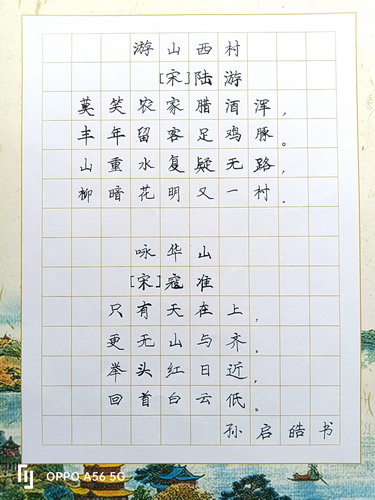 游山西村
[宋]陆游
莫笑农家腊酒浑，
丰年留客足鸡豚。
山重水复疑无路，
柳暗花明又一村。
咏华山
[宋]寇准
只有天在上，
更无山与齐。
举头红日近，
回首白云低。
孙启皓书
OPPO A56 5G